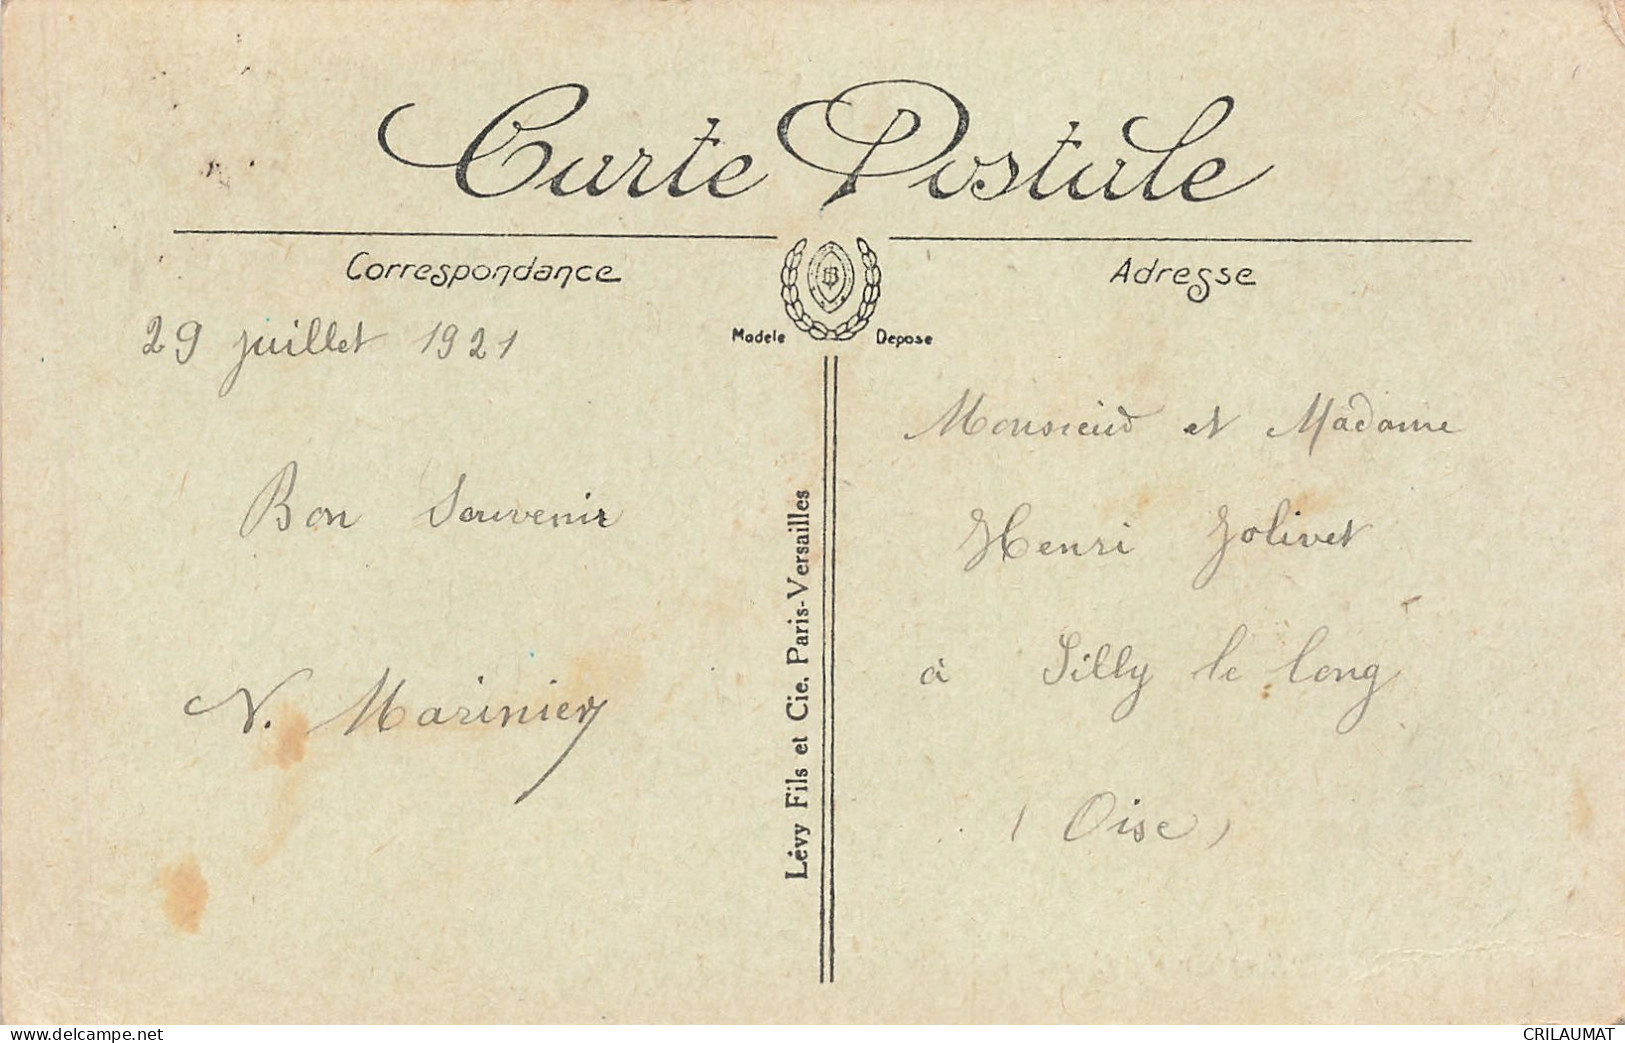 Carte Postale
Correspondance
Adresse
Modèle Déposé
29 juillet 1921
Bon Souvenir
V. Marinier
Monsieur et Madame
Henri Jolivet
à Silly le long
(Oise)
Lévy Fils et Cie, Paris-Versailles
delcampe.net
CRILAUMAT